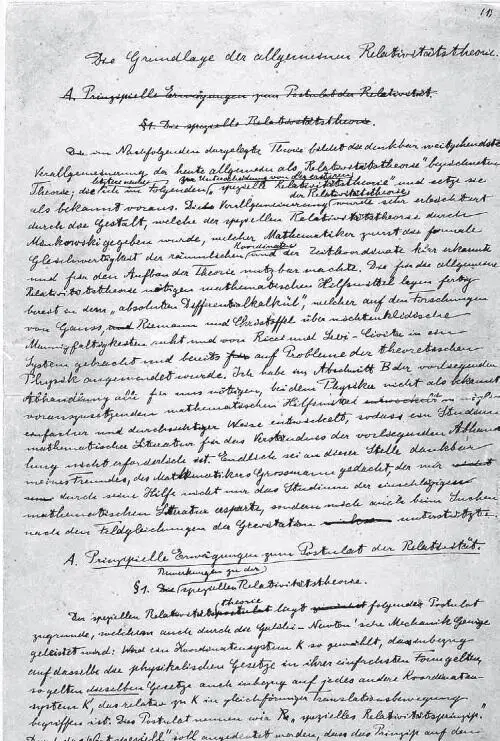 (1)
Die Grundlage der allgemeinen Relativitätstheorie.
A. Prinzipielle Erwägungen zum Postulat der Relativität.
§1. Die spezielle Relativitätstheorie.
Die im Nachfolgenden dargelegte Theorie bildet die denkbar weitgehendste
Verallgemeinerung der heute allgemein als „Relativitätstheorie" bezeichneten
zur Unterscheidung von der ersteren
Theorie; die ich im Folgenden „spezielle Relativitätstheorie" und setze sie
der Relativitätstheorie
als bekannt voraus. Die Verallgemeinerung wurde sehr erleichtert
durch die Gestalt, welche der speziellen Relativitätstheorie durch
Minkowski gegeben wurde, welcher Mathematiker zuerst die formale
Koordinaten
Gleichwertigkeit der räumlichen und der Zeitkoordinate klar erkannte
und für den Aufbau der Theorie nutzbar machte. Die für die allgemeine
Relativitätstheorie nötigen mathematischen Hilfsmittel lagen fertig
bereit in dem „absoluten Differentialkalkül", welcher auf den Forschungen
von Gauss, und Riemann und Christoffel über nichteuklidische
Mannigfaltigkeiten ruht und von Ricci und Levi-Civita in ein
System gebracht und bereits auf Probleme der theoretischen
Physik angewendet wurde. Ich habe im Abschnitt B der vorliegenden
Abhandlung alle für uns nötigen, bei dem Physiker nicht als bekannt
vorauszusetzenden mathematischen Hilfsmittel in möglichst
einfacher und durchsichtiger Weise entwickelt, sodass ein Studium
mathematischer Literatur für das Verständnis der vorliegenden Abhand-
lung nicht erforderlich ist. Endlich sei an dieser Stelle dankbar
meines Freundes, des Mathematikers Grossmann gedacht, der mir
durch seine Hilfe nicht nur das Studium der einschlägigen
mathematischen Literatur ersparte, sondern mich auch beim Suchen
nach den Feldgleichungen der Gravitation unterstützte.
A. Prinzipielle Erwägungen zum Postulat der Relativität.
Bemerkungen zu der
§1. Die speziellen Relativitätstheorie.
theorie
Der speziellen Relativitätspostulat liegt folgendes Postulat
zugrunde, welchem auch durch die Galilei-Newton'sche Mechanik Genüge
geleistet wird: Wird ein Koordinatensystem K so gewählt, dass inbezug
auf dasselbe die physikalischen Gesetze in ihrer einfachsten Form gelten,
so gelten dieselben Gesetze auch inbezug auf jedes andere Koordinaten-
system K', das relativ zu K in gleichförmiger Translationsbewegung
begriffen ist. Dies Postulat nennen wir „spezielles Relativitätsprinzip".
Durch das Wort „speziell" soll angedeutet werden, dass das Prinzip auf den